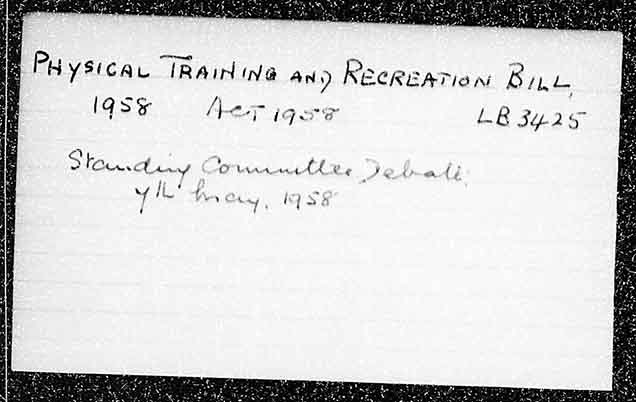 PHYSICAL TRAINING AND RECREATION BILL,
1958 ACT 1958 LB 3425
Standing Committee Debate,
7th May, 1958